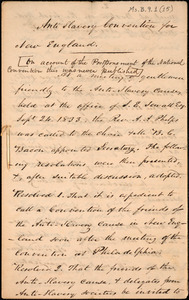 Ms. B. 9. 2 (15)
Anti Slavery Convention for
New England.
[On account of the Postponement of the National
Convention this was never published]
At a meeting of gentlemen
friendly to the Anti-Slavery Cause,
held at the office of S. E. Sewall Esq
Sept. 24. 1833. The Rev. A. A. Phelps
was called to the chair & Mr B. C.
Bacon appointed Secretary. The fol-
lowing resolutions were then presented,
&, after suitable discussion, adopted.
Resolved 1. That it is expedient to
call a Convention of the friends of
the Anti-Slavery Cause in New Eng-
land soon after the meeting of the
Convention at Philadelphia
Resolved 2. That the friends of the
Anti Slavery Cause, & delegates from
Anti-Slavery societies be invited to